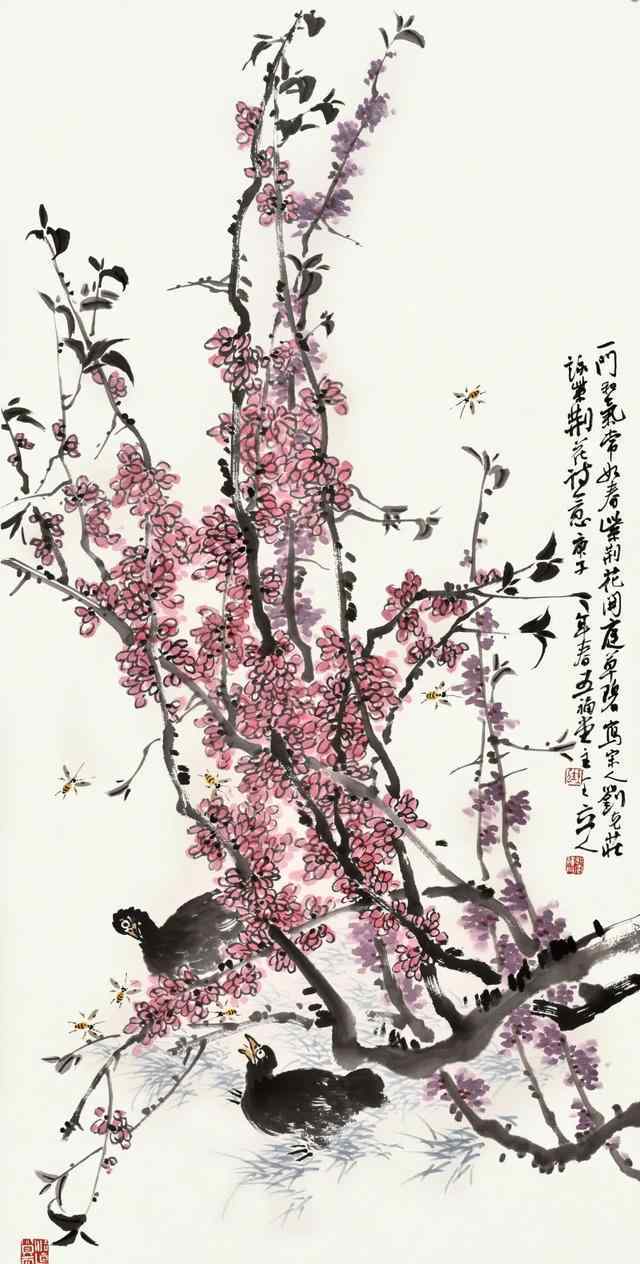 一門和氣常如春紫荊花開庭草碧寫宋人劉克莊
詠紫荊花詩意庚子年春五福堂主人立人